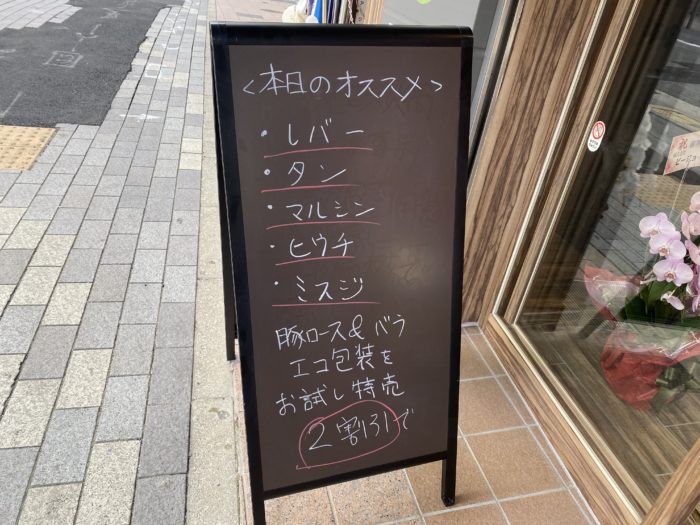 ＜本日のオススメ＞
・レバー
・タン
・マルシン
・ヒウチ
・ミスジ
豚ロース＆バラ
エコ包装を
お試し特売
2割引で
祝